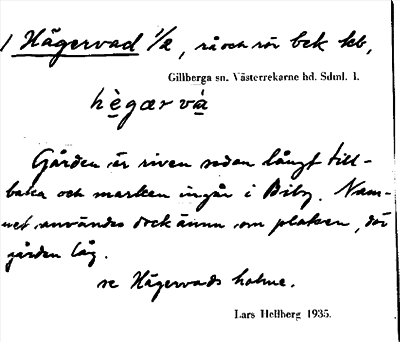 1 Hägervad 1/2, så och rör bek kb,
Gillberga sn. Västerrekarne hd. Sdml. l.
hègærvà
Gården är riven sedan långt till-
baka och marken ingår i Biby. Nam-
net användes dock ännu om platsen, där
gården låg.
se Hägervads holme.
Lars Hellberg 1935.